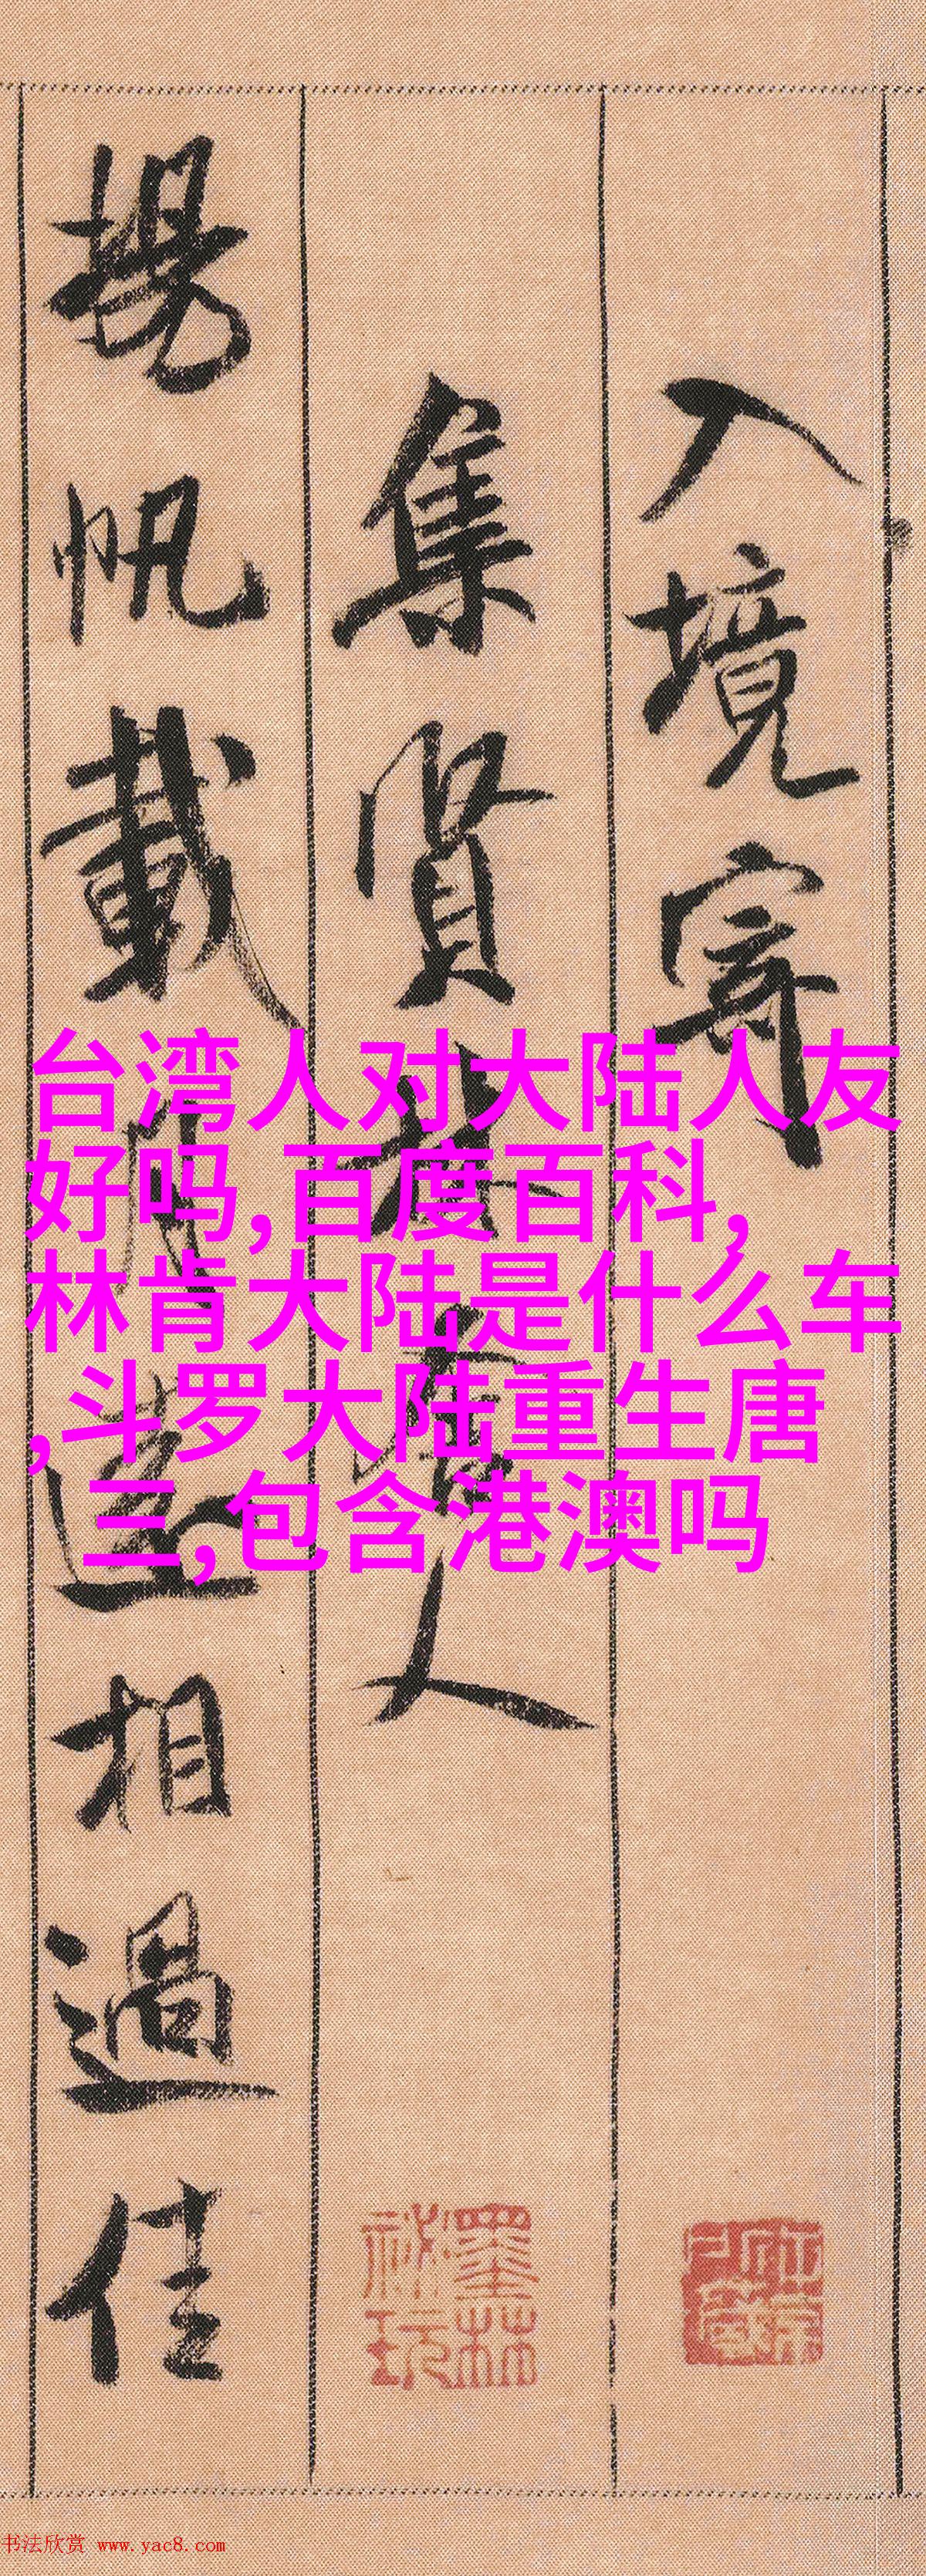 入境寄
集賢林舍人
揚帆載月遠相過佳
台湾人对大陆人友
好吗,百度百科,
林肯大陆是什么车
,斗罗大陆重生唐
三,包含港澳吗
墨林
秘玩
书法欣赏 www.yac8.com